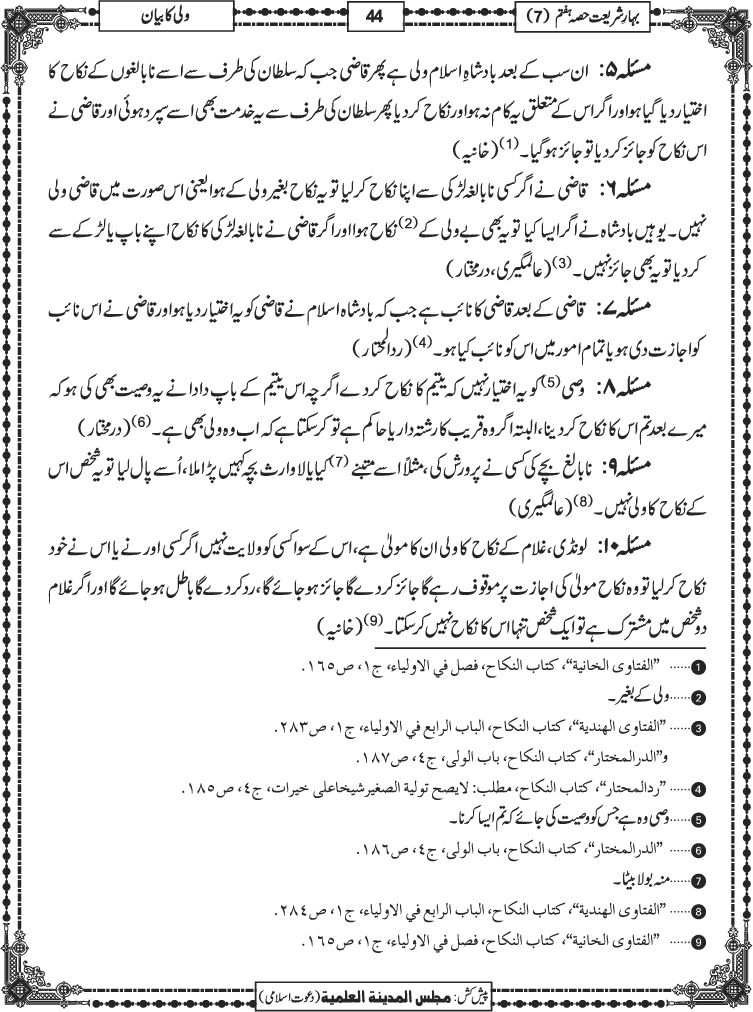 بہارِ شریعت حصہ ہفتم (7)
44
ولی کا بیان
مسئلہ ۵: ان سب کے بعد بادشاہِ اسلام ولی ہے پھر قاضی جب کہ سلطان کی طرف سے اسے نابالغوں کے نکاح کا
اختیار دیا گیا ہو اور اگر اس کے متعلق یہ کام نہ ہو اور نکاح کر دیا پھر سلطان کی طرف سے یہ خدمت بھی اسے سپرد ہوئی اور قاضی نے
اس نکاح کو جائز کر دیا تو جائز ہوگیا۔(1) (خانیہ)
مسئلہ ۶: قاضی نے اگر کسی نابالغہ لڑکی سے اپنا نکاح کرلیا تو یہ نکاح بغیر ولی کے ہوا یعنی اس صورت میں قاضی ولی
نہیں۔ یوہیں بادشاہ نے اگر ایسا کیا تو یہ بھی بے ولی کے(2) نکاح ہوا اور اگر قاضی نے نابالغہ لڑکی کا نکاح اپنے باپ یا لڑکے سے
کر دیا تو یہ بھی جائز نہیں۔(3) (عالمگیری، درمختار)
مسئلہ ۷: قاضی کے بعد قاضی کا نائب ہے جب کہ بادشاہ اسلام نے قاضی کو یہ اختیار دیا ہو اور قاضی نے اس نائب
کو اجازت دی ہو یا تمام امور میں اس کو نائب کیا ہو۔(4) (ردالمحتار)
مسئلہ ۸: وصی(5) کو یہ اختیار نہیں کہ یتیم کا نکاح کر دے اگرچہ اس یتیم کے باپ دادا نے یہ وصیت بھی کی ہو کہ
میرے بعد تم اس کا نکاح کر دینا، البتہ اگر وہ قریب کا رشتہ دار یا حاکم ہے تو کرسکتا ہے کہ اب وہ ولی بھی ہے۔(6) (درمختار)
مسئلہ ۹: نابالغ بچے کی کسی نے پرورش کی، مثلاً اسے متبنے(7) کیا یا لاوارث بچہ کہیں پڑا ملا، اُسے پال لیا تو یہ شخص اس
کے نکاح کا ولی نہیں۔(8) (عالمگیری)
مسئلہ ۱۰: لونڈی، غلام کے نکاح کا ولی ان کا مولیٰ ہے، اس کے سوا کسی کو ولایت نہیں اگر کسی اور نے یا اس نے خود
نکاح کرلیا تو وہ نکاح مولیٰ کی اجازت پر موقوف رہے گا جائز کر دے گا جائز ہوجائے گا، رد کر دے گا باطل ہوجائے گا اور اگر غلام
دو شخص میں مشترک ہے تو ایک شخص تنہا اس کا نکاح نہیں کرسکتا۔(9) (خانیہ)
1 ...... ”الفتاوی الخانیة“، کتاب النکاح، فصل في الاولیاء، ج۱، ص۱٦٥.
2 ......ولی کے بغیر۔
3 ...... ”الفتاوی الهندیة“، کتاب النکاح، الباب الرابع في الاولیاء، ج۱، ص۲۸۳.
و”الدرالمختار“، کتاب النکاح، باب الولی، ج٤، ص۱۸۷.
4 ...... ”ردالمحتار“، کتاب النکاح، مطلب: لایصح تولیة الصغیر شیخا علی خیرات، ج٤، ص۱۸٥.
5 ......وصی وہ ہے جس کو وصیت کی جائے کہ تم ایسا کرنا۔
6 ...... ”الدرالمختار“، کتاب النکاح، باب الولی، ج٤، ص۱۸٦.
7 ......منہ بولا بیٹا۔
8 ...... ”الفتاوی الهندیة“، کتاب النکاح، الباب الرابع في الاولیاء، ج۱، ص۲۸٤.
9 ...... ”الفتاوی الخانیة“، کتاب النکاح، فصل في الاولیاء، ج۱، ص۱٦٥.
پیش کش: مجلس المدینة العلمیة (دعوت اسلامی)